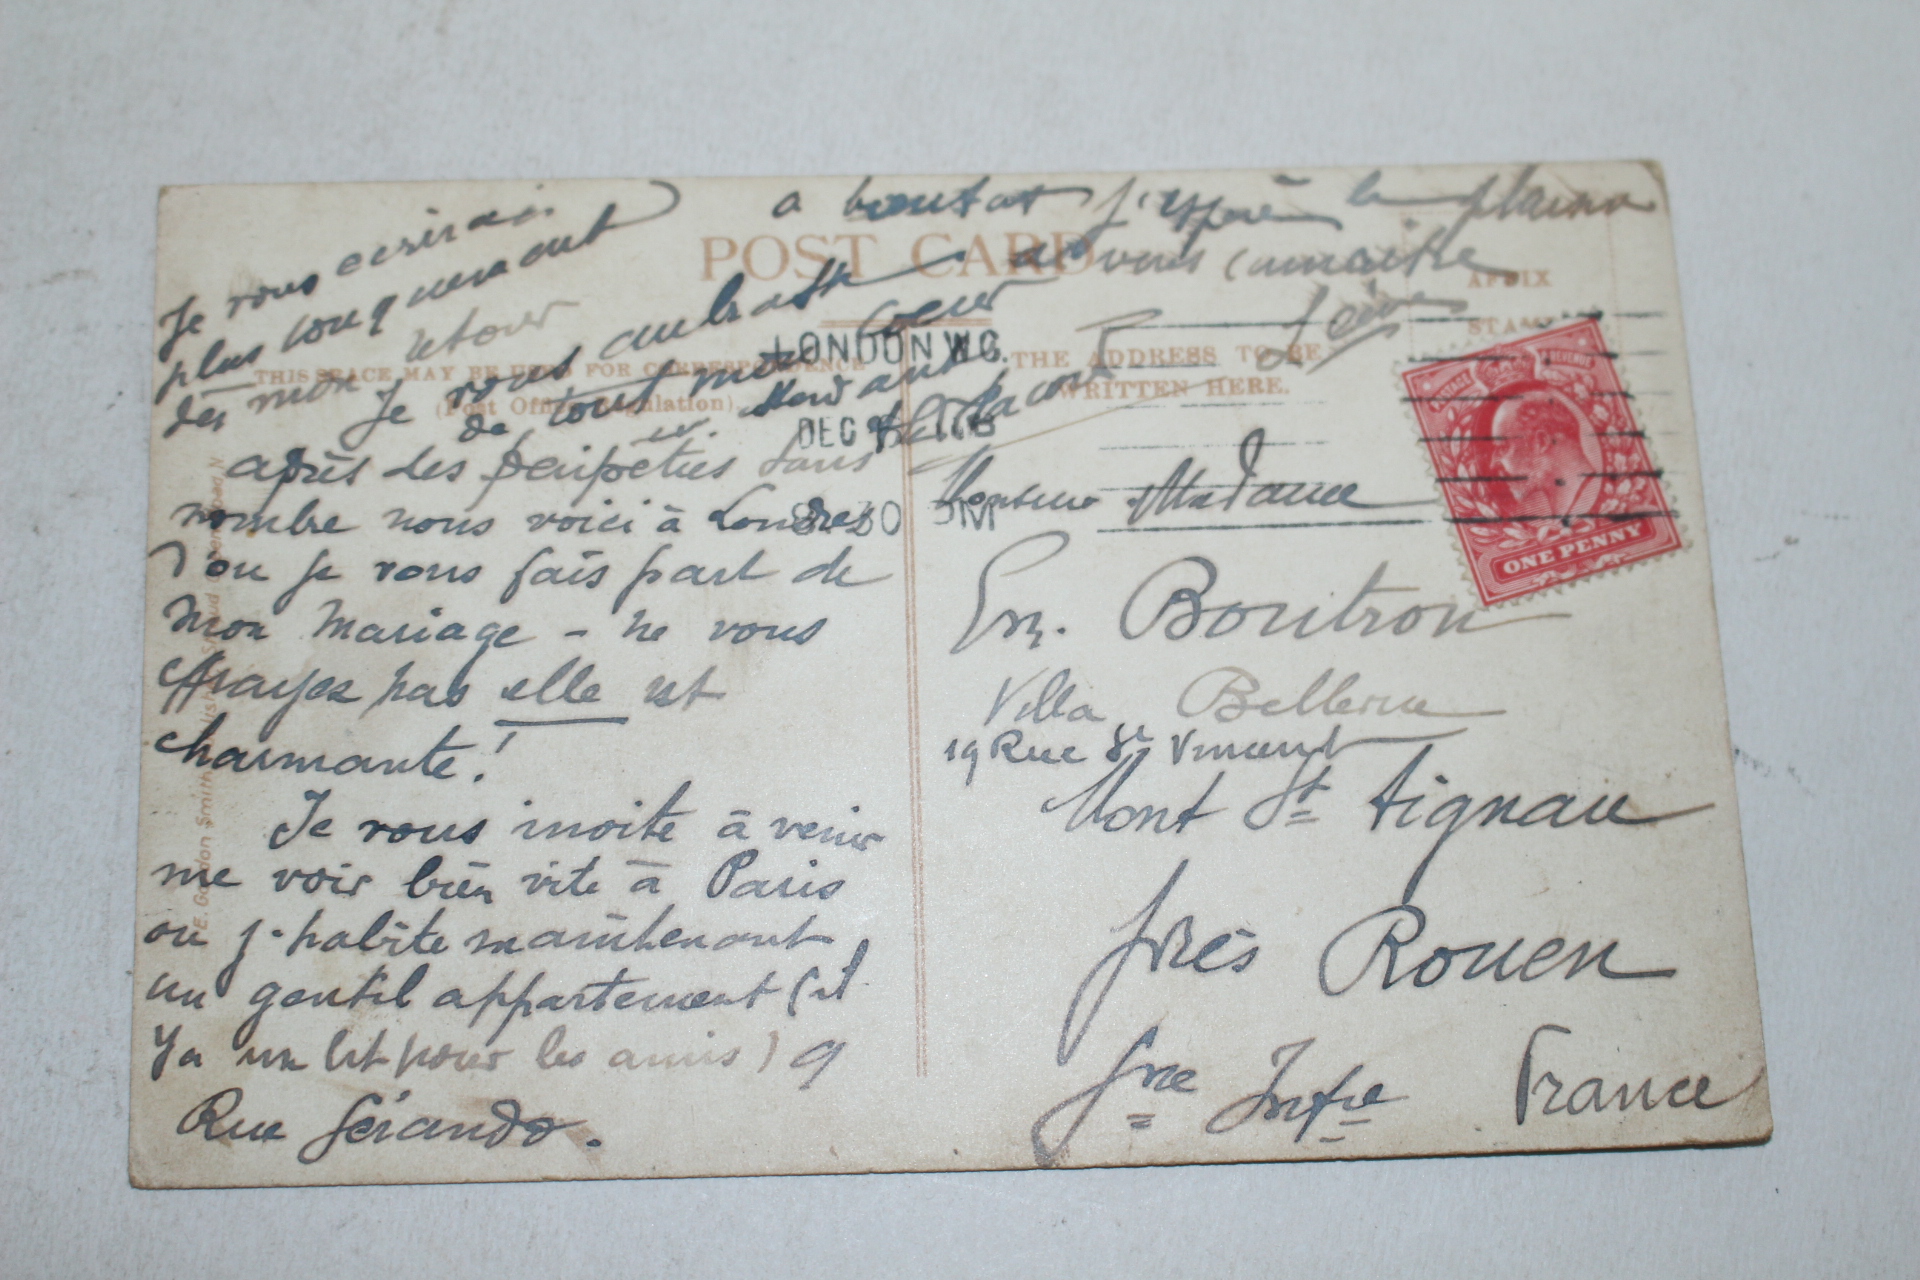 POST CARD
THIS SPACE MAY BE USED FOR CORRESPONDENCE
(Post Office Regulation).
THE ADDRESS TO BE
WRITTEN HERE.
AFFIX
STAMP
LONDON W.C.
DEC
8.30 PM
ONE PENNY
POSTAGE REVENUE
après des peripeties sans
nombre nous voici à Londres
d'ou je vous fais part de
mon mariage - ne vous
effrayez pas elle est
charmante!
Je vous invite à venir
me voir bien vite à Paris
ou j'habite maintenant
un gentil appartement (il
y a un lit pour les amis) 9
Rue Gérando.
Je vous ecrirai
plus longuement
dès mon retour
Je vous embrasse
de tout mon coeur
a bientot j'espère le plaisir
de vous connaitre
Monsieur Madame
Em. Boutron
Villa Bellevue
19 Rue St Vincent
Mont St Aignan
près Rouen
Sne Infre France